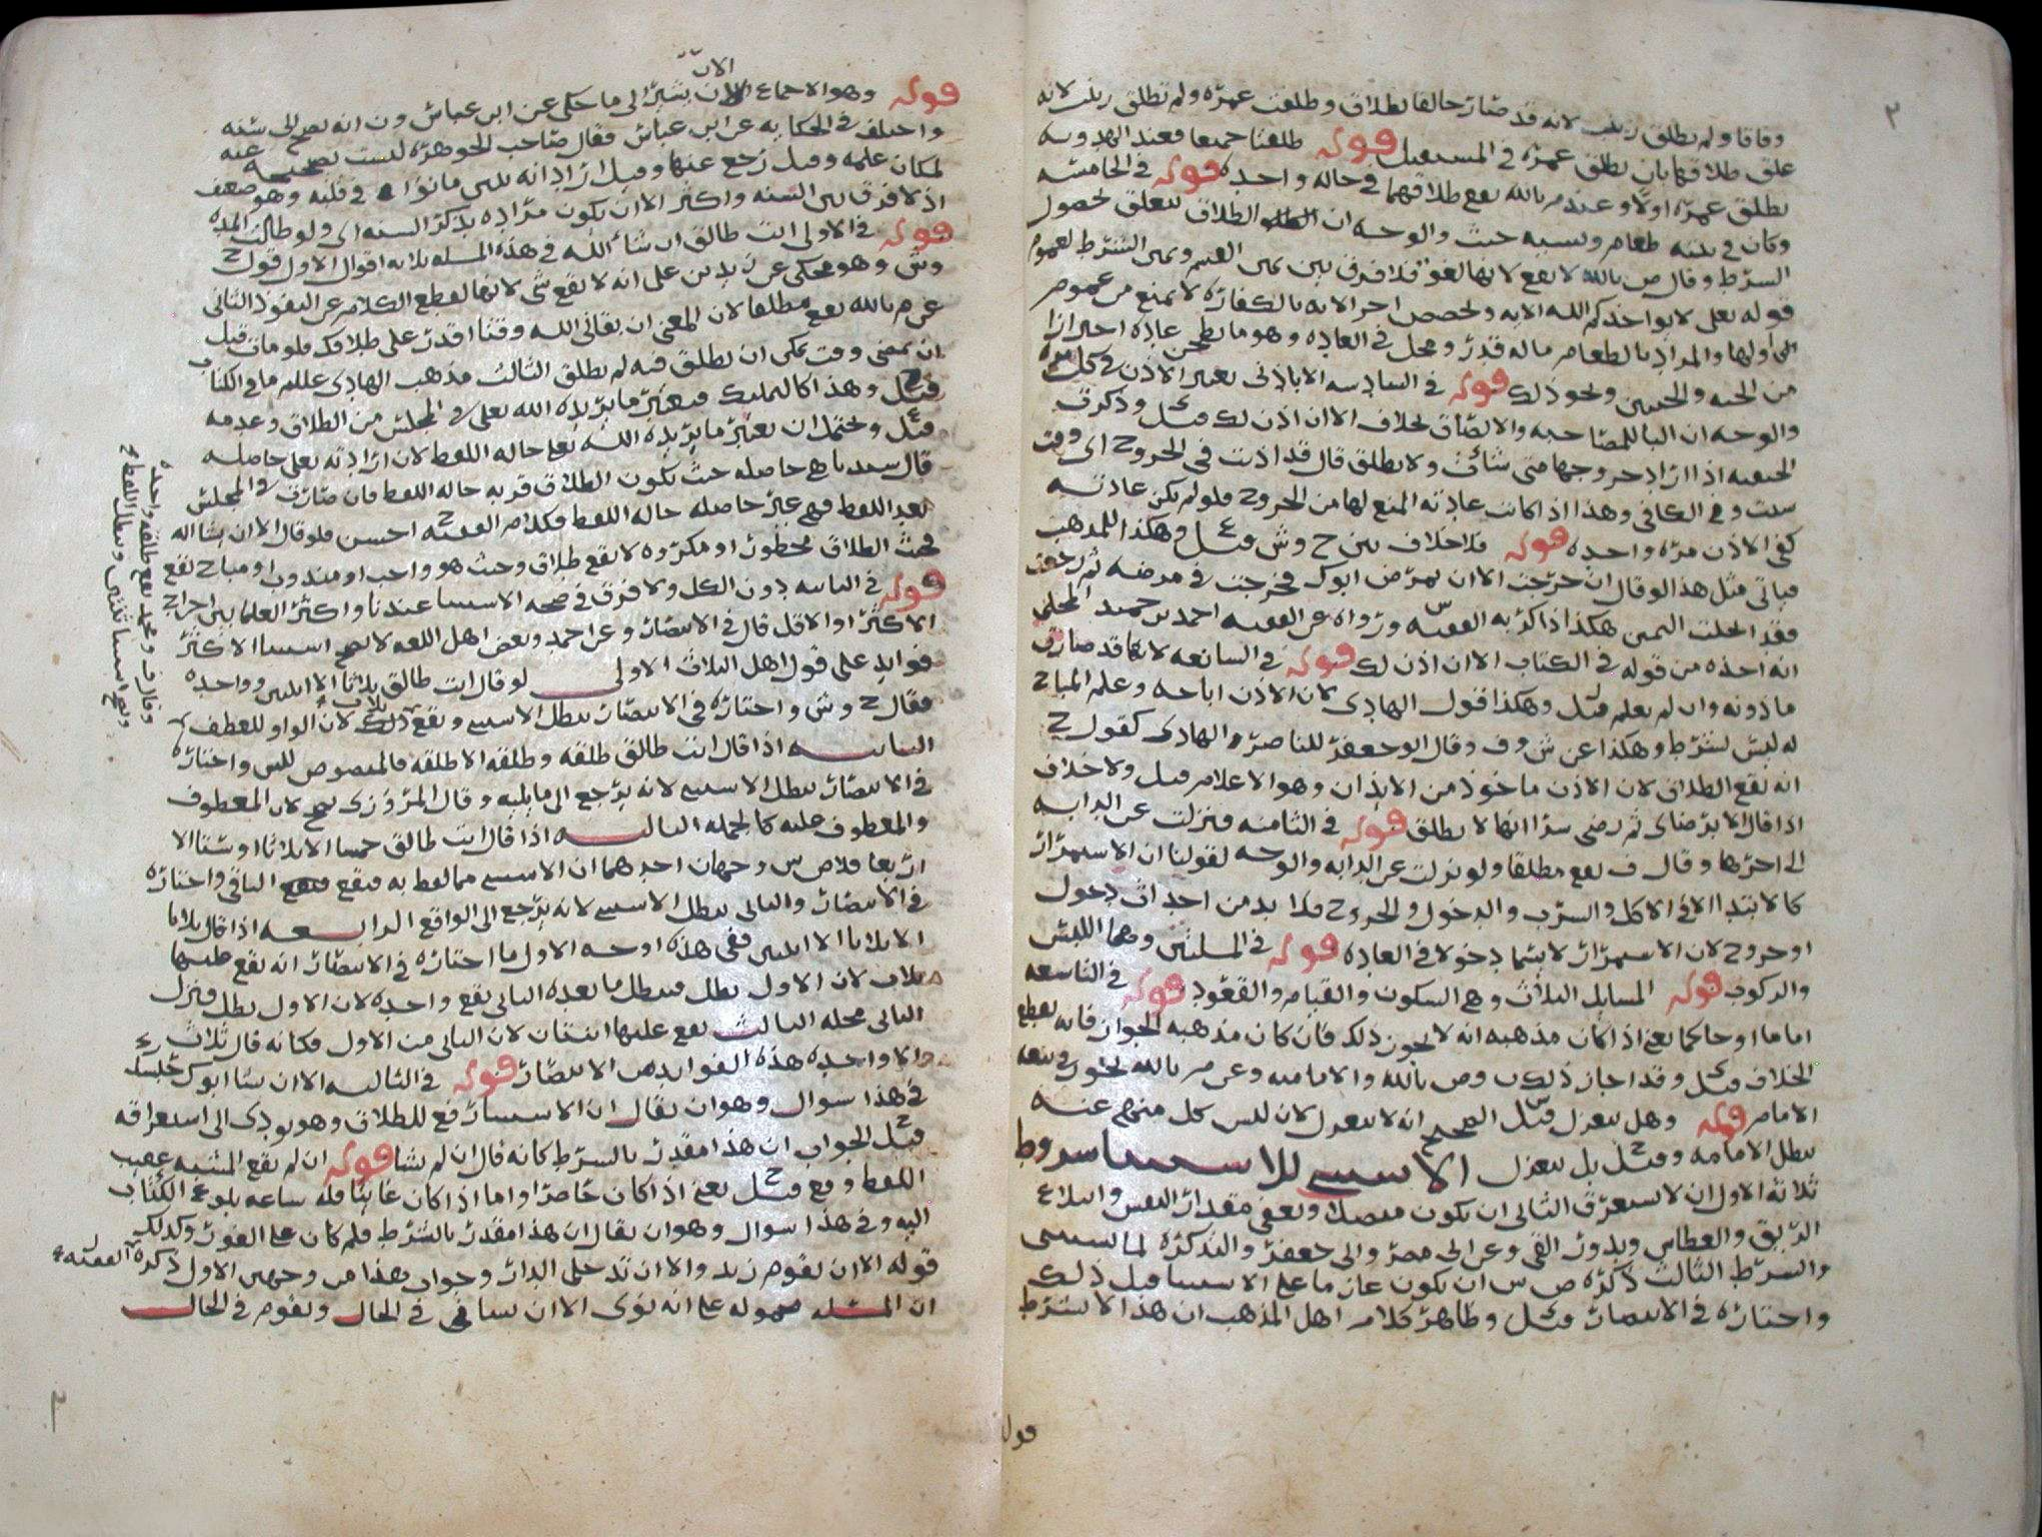 ٣
وفاقا ولم تطلق زينب لانه قد صار حالفا بطلاق وطلقت عمره ولم تطلق زينب لانه
علق طلاقها بان تطلق عمره في المستقبل قوله طلقتا جميعا فعند الهدويه
تطلق عمره اولا وعند م بالله يقع طلاقهما في حاله واحده قوله في الخامسه
وكان في بيته طعام ونسيه حنث والوجه ان الطلاق يتعلق بحصول
الشرط وقال ص بالله لا يقع لانها لغو فلا فرق بين يمين القسم ويمين الشرط لعموم
قوله تعلى لا يواخذكم الله الايه وتخصيص اخر الايه بالكفاره لا يمنع من عموم
اولها والمراد بالطعام ما له قدر ومحل في العاده وهو ما يطحن عاده احترازا
من الحبه والحبتين ونحو ذلك قوله في السادسه الا باذني يعتبر الاذن في كل مره
والوجه ان البا للمصاحبه والالصاق بخلاف الا ان اذن لك قيل وذكرت
الحنفيه اذا اراد خروجها متى شائت ولا تطلق قال قد اذنت في الخروج اي وقت
شئت وفي الكافي وهذا اذا كانت عادته المنع لها من الخروج فلو لم تكن عادته
كفى الاذن مره واحده قوله فلا خلاف بين ح وش قيل ع وهكذا للمذهب
فياتي مثل هذا لو قال ان خرجت الا ان يمرض ابوك فخرجت في مرضه ثم رجعت
فقد انحلت اليمين هكذا ذاكر به الفقيه س ورواه عن الفقيه احمد بن حميد المحلي
انه اخذه من قوله في الكتاب الا ان اذن لك قوله في السابعه لانها قد صارت
ماذونه وان لم تعلم قيل وهكذا قول الهادي لان الاذن اباحه وعلم المباح
له ليس بشرط وهكذا عن ش وف وقال ابو جعفر للناصر والهادي كقول ح
انه يقع الطلاق لان الاذن ماخوذ من الايذان وهو الاعلام قيل ولا خلاف
اذا قال الا برضاي ثم رضي سرا انها لا تطلق قوله في الثامنه فنزلت عن الدابه
الى اخرها وقال ف يقع مطلقا ولو نزلت عن الدابه والوجه لقولنا ان الاستمرار
كالابتدا الا في الاكل والشرب والدخول والخروج فلا بد من احداث دخول
او خروج لان الاستمرار لا يسما دخولا في العاده قوله في المسلتين وهما اللبس
والركوب قوله المسايل الثلاث وهي السكون والقيام والقعود قوله في التاسعه
اماما او حاكما يعني اذا كان مذهبه انه لا يجوز ذلك فان كان مذهبه الجواز فانه يقطع
الخلاف قيل وقد اجاز ذلك ص بالله والاماميه وعن م بالله نحوه ويتبعه
الامام قوله وهل ينعزل قيل س الصحيح انه لا ينعزل لان لبس كل منهم عنه
تبطل الامامه وقيل ح بل ينعزل الاستثنى للاستثنا شروط
ثلاثه الاول ان لا يستغرق الثاني ان يكون متصلا ويعفى مقدار النفس وابتلاع
الريق والعطاس وبدور القي وعن ابي مضر وابي جعفر والتذكره لما يستثنى
والشرط الثالث ذكره ص س ان يكون عازما على الاستثنا قبل ذلك
واختاره في الانتصار قيل وظاهر كلام اهل المذهب ان هذا لا يشترط
قوله
الان
قوله وهو الاجماع الان يشير الى ما حكى عن ابن عباس ون انه يصح الى سنه
واختلف في الحكايه عن ابن عباس فقال صاحب الجوهره ليست بصحيحه عنه
لمكان علمه وقيل رجع عنها وقيل اراد انه يبين ما نواه في قلبه وهو ضعيف
اذ لا فرق بين السنه واكثر الا ان يكون مراده بذكر السنه اي ولو طالت المده
قوله في الاولى انت طالق ان شاء الله في هذه المسله ثلاثه اقوال الاول قول ح
وش وهو محكي عن زيد بن علي انه لا يقع شي لانها لقطع الكلام عن النفوذ الثاني
عن م بالله يقع مطلقا لان المعنى ان بقاني الله وقتا اقدر على طلاقك فلو مات قبل
ان يمضي وقت يمكن ان تطلق فيه لم تطلق الثالث مذهب الهادي عليلم ما في الكتاب
قيل ح وهذا كالتمليك فيعتبر ما يريده الله تعلى في المجلس من الطلاق وعدمه
قيل ع ويحتمل ان يعتبر ما يريده الله تعلى حاله اللفظ لان ارادته تعلى حاصله
قال سيدنا هي حاصله حيث يكون الطلاق قربه حاله اللفظ فان صارت في المجلس
بعد اللفظ فهي غير حاصله حاله اللفظ فكلام الفقيه ح احسن فلو قال الا ان يشا الله
فحيث الطلاق محظور او مكروه لا يقع طلاق وحيث هو واجب او مندوب او مباح يقع
قوله في الثانيه دون الكل ولا فرق في صحه الاستثنا عندنا واكثر العلما بين اخراج
الاكثر او الاقل قال في الانتصار وعن احمد وبعض اهل اللغه لا يصح استثنا الاكثر
فوايد على قول اهل الثلاث الاولى لو قال انت طالق ثلاثا الا اثنتين وواحده
فقال ح وش واختاره في الانتصار يبطل الاستثنى ويقع ثلاث لان الواو للعطف
الثانيه اذا قال انت طالق طلقه وطلقه الا طلقه فالمنصوص للش واختاره
في الانتصار يبطل الاستثنى لانه يرجع الى ما يليه وقال المروزي يصح لان المعطوف
والمعطوف عليه كالجمله الثالثه اذا قال انت طالق خمسا الا ثلاثا او ستا الا
اربعا فلاص ش وجهان احدهما ان الاستثنى مما لفظ به فيقع الباقي واختاره
في الانتصار والثاني يبطل الاستثنى لانه يرجع الى الواقع الرابعه اذا قال ثلاثا
الا ثلاثا الا اثنتين ففي هذه اوجه الاول ما اختاره في الانتصار انه يقع عليها
ثلاث لان الاول بطل فيبطل ما بعده الثاني يقع واحده لان الاول بطل فنزل
الثاني محله الثالث يقع عليها اثنتان لان الثاني من الاول فكانه قال ثلاث
الا واحده هذه الفوايد من الانتصار قوله في الثالثه الا ان يشا ابوك
في هذا سوال وهو ان يقال ان الاستثنا رفع للطلاق وهو يودي الى استغراقه
قيل الجواب ان هذا مقدر بالشرط كانه قال ان لم يشا قوله ان لم يقع المشيه عقيب
اللفظ وقع قيل ح يعني اذا كان حاضرا واما اذا كان غايبا فله ساعه بلوغ الكتاب
اليه وفي هذا سوال وهو ان يقال ان هذا مقدر بالشرط فلم كان على الفور وكذلك
قوله الا ان يقوم زيد والا ان تدخلي الدار وجواب هذا من وجهين الاول ذكره الفقيه ل
ان المسئله محموله على انه نوى الا ان يشا في الحال ويقوم في الحال
وقال ف ومحمد يقع طلقه واحده
٣